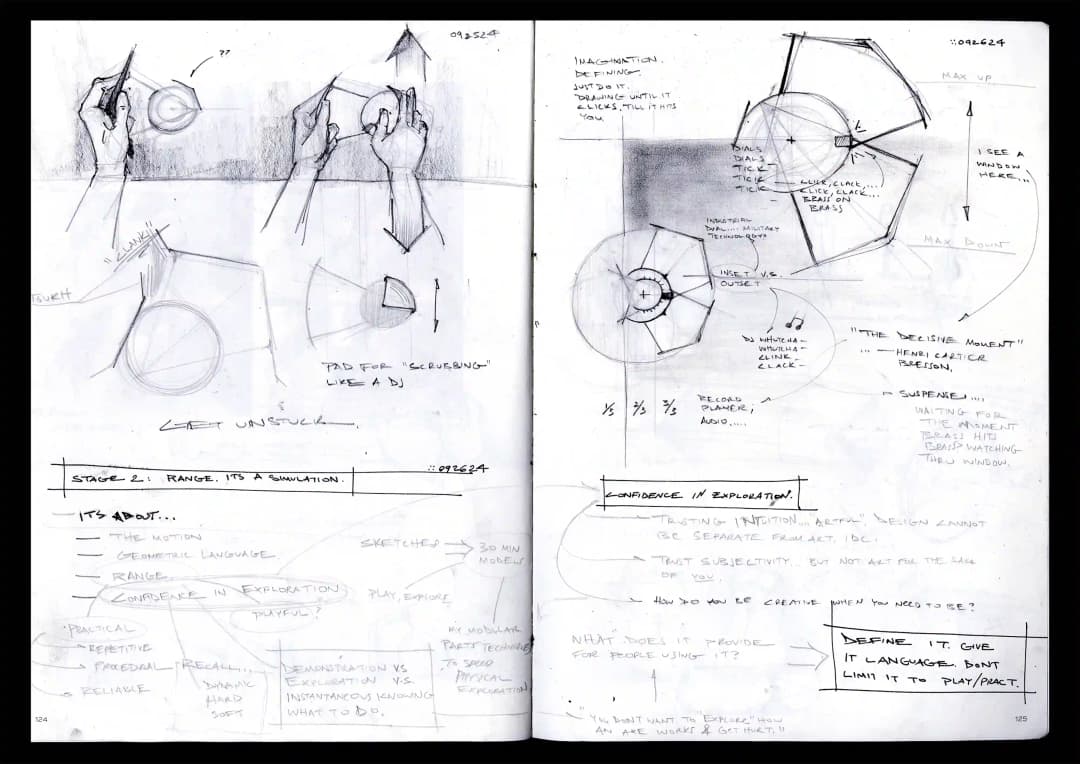 092524
??
"CLANK!"
PAD FOR "SCRUBBING"
LIKE A DJ
GET UNSTUCK.
::092624
STAGE 2: RANGE. ITS A SIMULATION.
ITS ABOUT...
— THE MOTION
— GEOMETRIC LANGUAGE
— RANGE
— CONFIDENCE IN EXPLORATION
PLAYFUL?
PRACTICAL
REPETITIVE
PROCEDRAL
RELIABLE
RECALL...
DYNAMIC
HARD
SOFT
DEMONSTRATION VS
EXPLORATION V.S.
INSTANTANEOUS KNOWING
WHAT TO DO.
SKETCHES
30 MIN
MODELS
PLAY, EXPLORE
MY MODULAR
PARTS TECHNIQUE
TO SPEED
PHYSICAL
EXPLORATION
124
::092624
IMAGINATION.
DEFINING.
JUST DO IT.
DRAWING UNTIL IT
CLICKS, TILL IT HITS
YOU.
MAX UP
I SEE A
WINDOW
HERE...
MAX DOWN
DIALS
DIALS
TICK
TICK
TICK
CLICK, CLACK,...
CLICK, CLACK...
BRASS ON
BRASS
INDUSTRIAL
DIAL.... MILITARY
TECHNOLOGY
INSET V.S.
OUTSET
DJ WHUTCHA—
WHUTCHA—
CLINK—
CLACK—
"THE DECISIVE MOMENT"
... — HENRI CARTIER
BRESSON.
— SUSPENSE!....
WAITING FOR
THE MOMENT
BRASS HITS
BRASS WATCHING
THRU WINDOW.
1/3 2/3 3/3
RECORD
PLAYER;
AUDIO.....
CONFIDENCE IN EXPLORATION.
TRUSTING INTUITION... "ARTFUL". DESIGN CANNOT
BE SEPARATE FROM ART. IDC.
TRUST SUBJECTIVITY... BUT NOT ART FOR THE SAKE
OF YOU.
HOW DO YOU BE CREATIVE WHEN YOU NEED TO BE?
WHAT DOES IT PROVIDE
FOR PEOPLE USING IT?
DEFINE IT. GIVE
IT LANGUAGE. DONT
LIMIT IT TO PLAY/PRACT.
"YOU DONT WANT TO "EXPLORE" HOW
AN AXE WORKS & GET HURT."
125